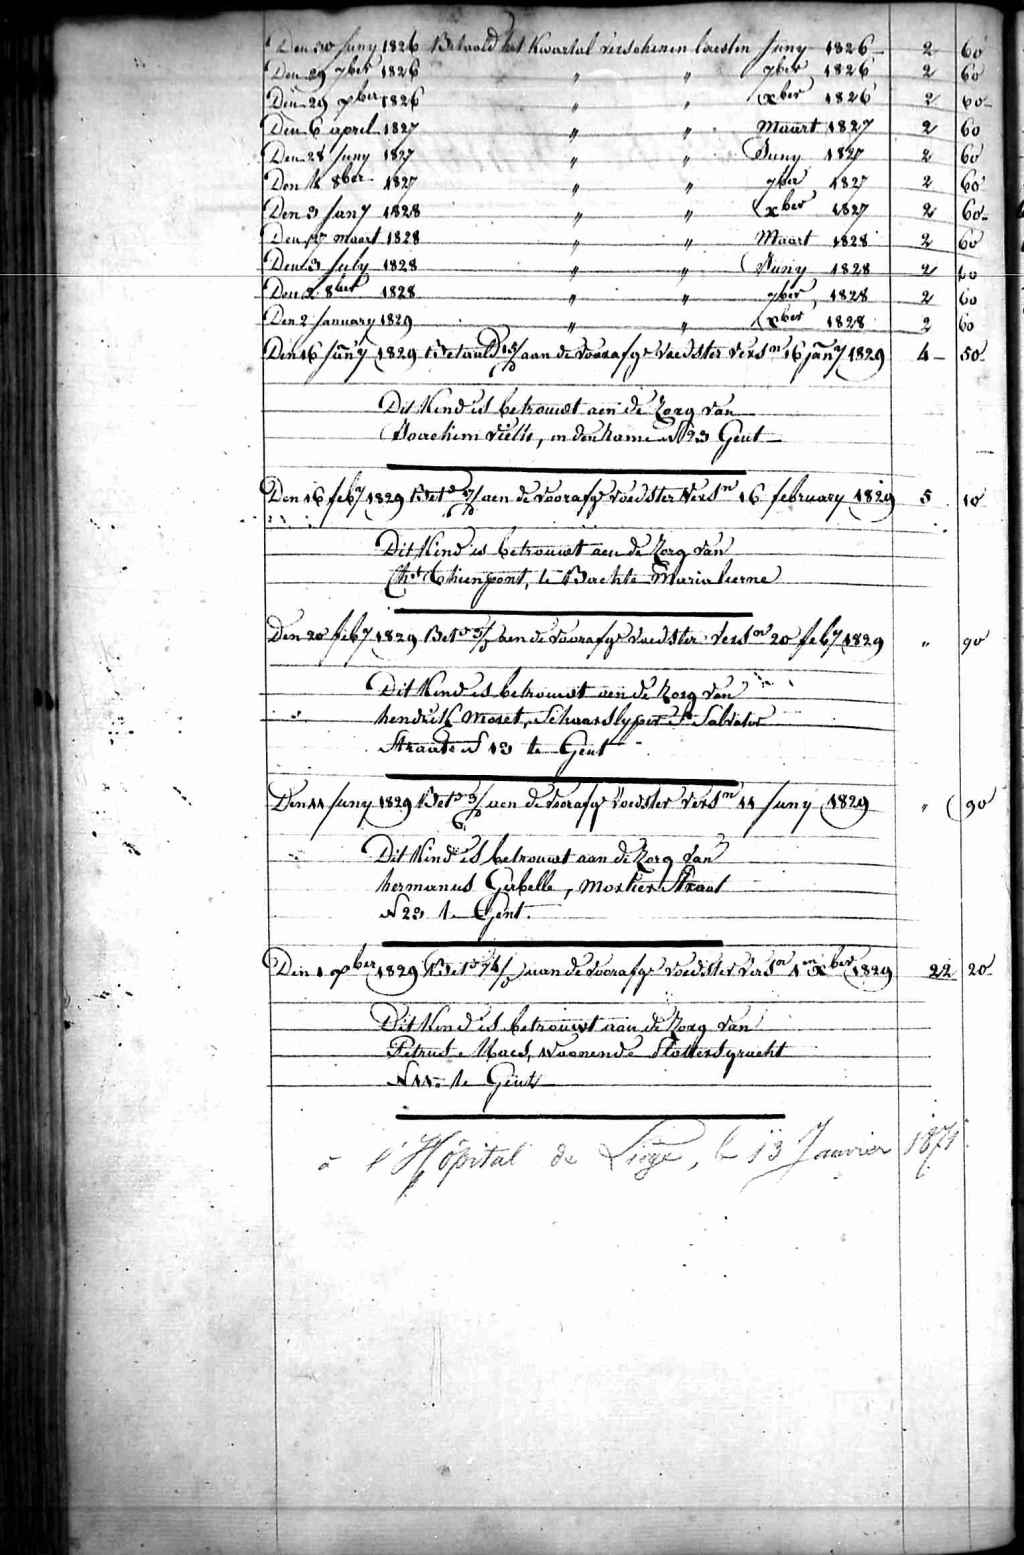 Den 30 Juny 1826 Betaald het Kwartal verschenen laesten Juny 1826 2 60
Den 29 7ber 1826 " " 7ber 1826 2 60
Den 29 xber 1826 " " xber 1826 2 60
Den 6 april 1827 " " Maart 1827 2 60
Den 28 Juny 1827 " " Juny 1827 2 60
Den 8ber 1827 " " 7ber 1827 2 60
Den 3 Jany 1828 " " xber 1827 2 60
Den maart 1828 " " Maart 1828 2 60
Den 3 July 1828 " " Juny 1828 2 60
Den 2 8ber 1828 " " 7ber 1828 2 60
Den 2 January 1829 " " xber 1828 2 60
Den 16 Jany 1829 Betaald aan de voorafge voedster versn 16 jany 1829 4 50
Dit Kind is betrouwt aen de Zorg van
Joachim, N 33 Gent
Den 16 feby 1829 Bet aen de voorafge voedster versn 16 february 1829 5 10
Dit Kind is betrouwt aen de Zorg van
te Bachte Maria leerne
Den 20 feby 1829 Bet aen de voorafge voedster versn 20 feby 1829 " 90
Dit Kind is betrouwt aen de Zorg van
hendrik Moret, Schaerslyper St Salvator
Straate N 13 te Gent
Den 11 Juny 1829 Bet aen de voorafge voedster versn 11 Juny 1829 " 90
Dit Kind is betrouwt aan de Zorg van
hermanus Gebelle, Mortier Straat
N 23 te Gent.
Den 1 xber 1829 Bet aan de voorafge voedster versn 1en xber 1829 22 20
Dit Kind is betrouwt aan de Zorg van
Petrus Maes, Woonende Slottersgracht
N 11 te Gent
à l'Hôpital de Liège, le 13 Janvier 1871